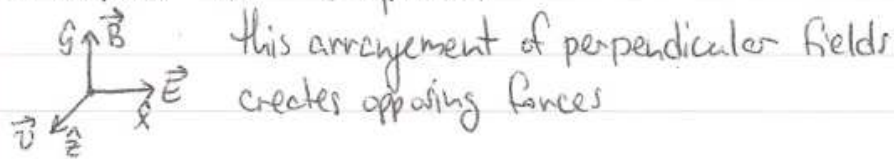 ŷ B⃗ this arrangement of perpendicular fields
E⃗ creates opposing forces
x̂
v⃗ ẑ